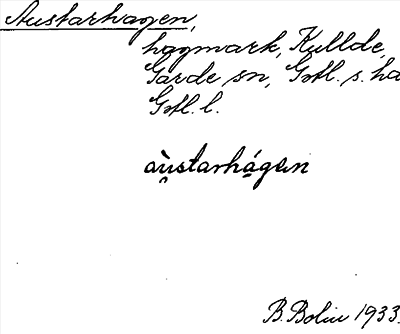 Austarhagen,
hagmark, Kullde,
Garde sn, Gotl. s. hd
Gotl. l.
aù̯starhágen
B. Bolin 1933.